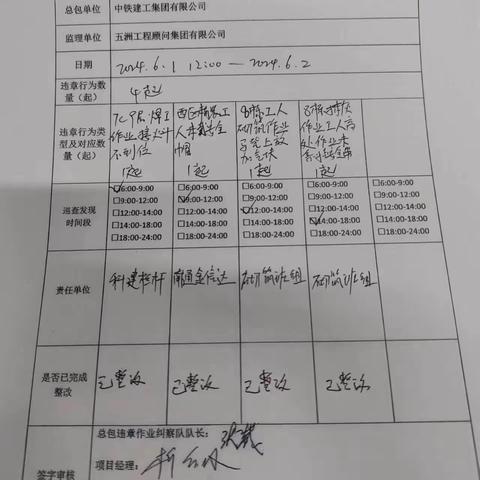 总包单位 中铁建工集团有限公司
监理单位 五洲工程顾问集团有限公司
日期 2024.6.1 12:00 — 2024.6.2
违章行为数
量（起） 4起
违章行为类
型及对应数
量（起）
焊工
作业接火斗
不到位
1起
工
人未戴安全
帽
1起
工人
砌筑作业
加气块
1起
作业工人高
处作业未
系挂安全带
1起
巡查发现
时间段
☑6:00-9:00 □6:00-9:00 □6:00-9:00 □6:00-9:00 □6:00-9:00
□9:00-12:00 ☑9:00-12:00 □9:00-12:00 □9:00-12:00 □9:00-12:00
□12:00-14:00 □12:00-14:00 ☑12:00-14:00 □12:00-14:00 □12:00-14:00
□14:00-18:00 □14:00-18:00 □14:00-18:00 ☑14:00-18:00 □14:00-18:00
□18:00-24:00 □18:00-24:00 □18:00-24:00 □18:00-24:00 □18:00-24:00
责任单位 科建栏杆 南通金信达 砌筑班组 砌筑班组
是否已完成
整改 已整改 已整改 已整改 已整改
总包违章作业纠察队队长：
签字审核
项目经理：